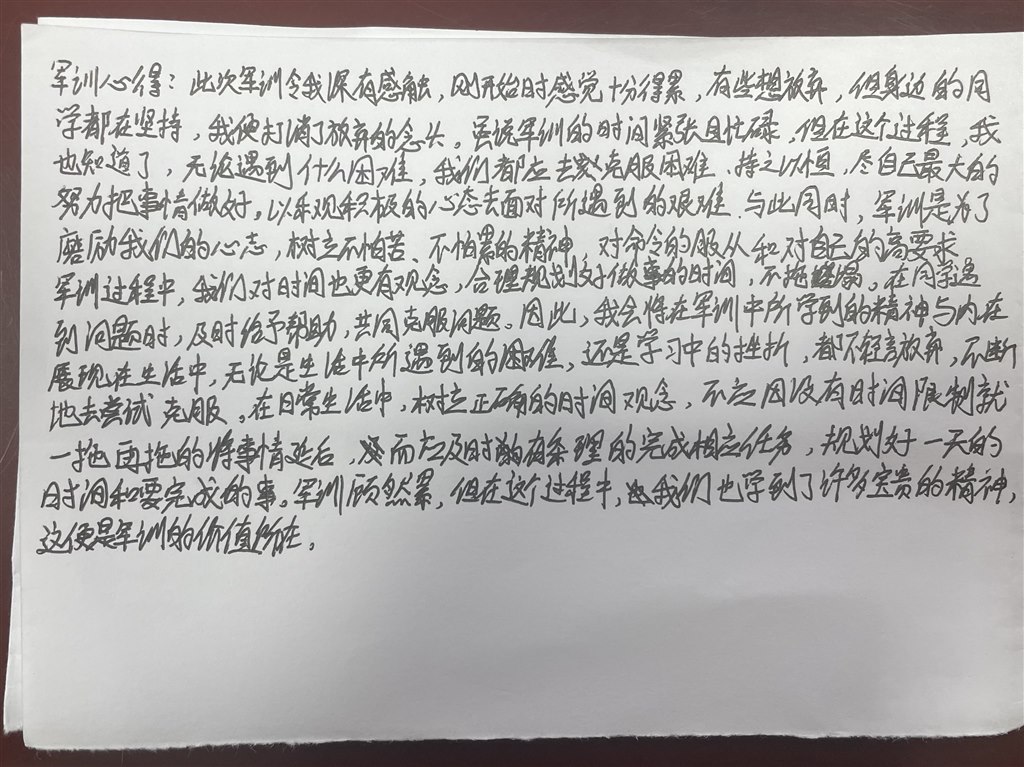 军训心得：此次军训令我深有感触，刚开始时感觉十分得累，有些想放弃，但身边的同
学都在坚持，我便打消了放弃的念头。虽说军训的时间紧张且忙碌，但在这个过程，我
也知道了，无论遇到什么困难，我们都应去克服困难、持之以恒，尽自己最大的
努力把事情做好。以乐观积极的心态去面对所遇到的艰难。与此同时，军训是为了
磨励我们的心志，树立不怕苦、不怕累的精神，对命令的服从和对自己的高要求
军训过程中，我们对时间也更有观念，合理规划好做事的时间，不拖。在同学遇
到问题时，及时给予帮助，共同克服问题。因此，我会将在军训中所学到的精神与内在
展现在生活中，无论是生活中所遇到的困难，还是学习中的挫折，都不轻言放弃，不断
地去尝试克服。在日常生活中，树立正确的时间观念，不应因没有时间限制就
一拖再拖的将事情延后，而应及时的有条理的完成相应任务，规划好一天的
时间和要完成的事。军训固然累，但在这个过程中，我们也学到了许多宝贵的精神，
这便是军训的价值所在。